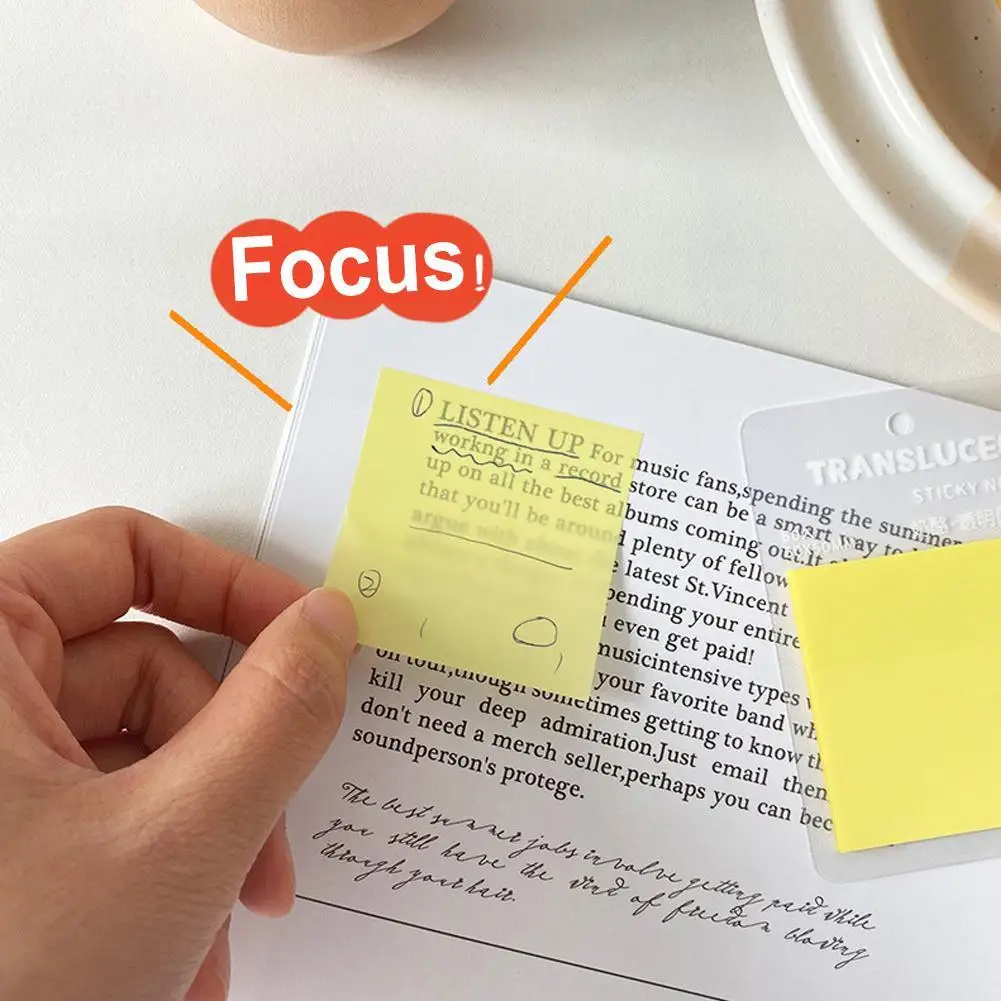 Focus!
① LISTEN UP For music fans,spending the summer
workng in a record store can be a smart way to
up on all the best albums coming out.It
that you'll be around plenty of fellow
argue with about latest St.Vincent
pending your entire
② even get paid!
musicintensive types
on tour,though sometimes your favorite band wh
kill your deep admiration.Just getting to know th
don't need a merch seller,perhaps email then
soundperson's protege. you can bec
The best summer jobs involve getting paid while
you still have the wind of freedom blowing
through your hair.
TRANSLUCE
STICKY N
透明
50MM